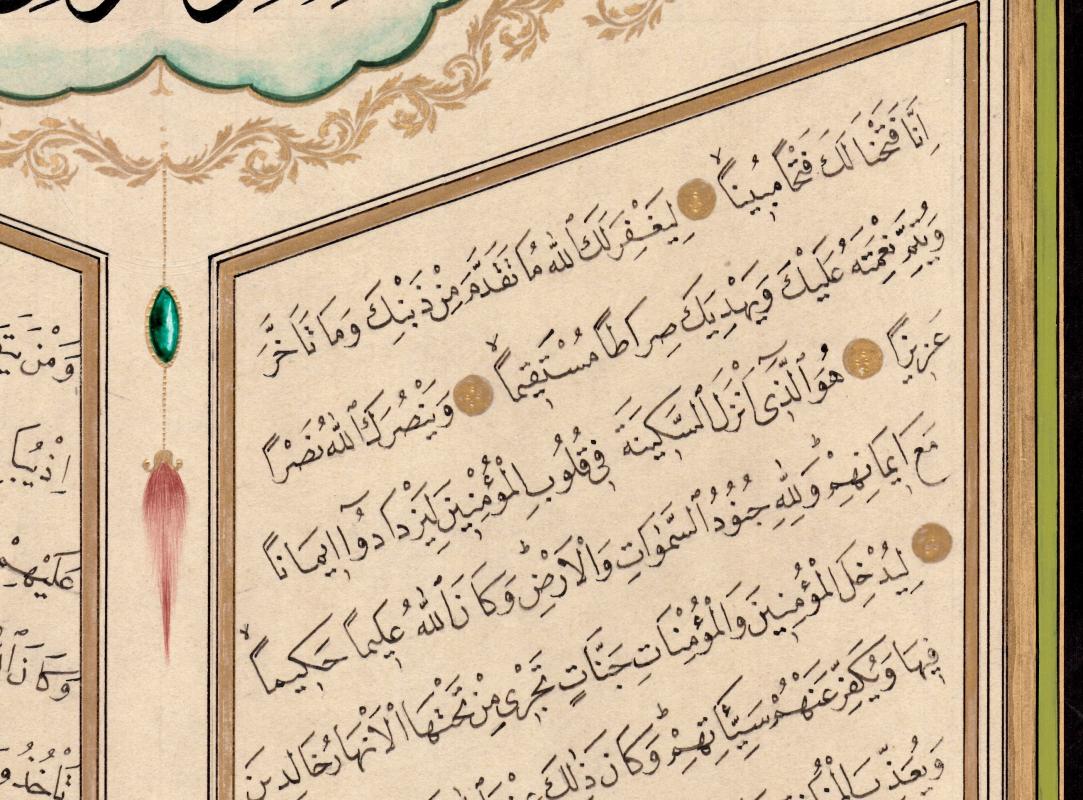 اِنَّا فَتَحْنَا لَكَ فَتْحًا مُبٖينًا لِيَغْفِرَ لَكَ ٱللّٰهُ مَا تَقَدَّمَ مِنْ ذَنْبِكَ وَمَا تَاَخَّرَ
وَيُتِمَّ نِعْمَتَهُ عَلَيْكَ وَيَهْدِيَكَ صِرَاطًا مُسْتَقٖيمًا وَيَنْصُرَكَ ٱللّٰهُ نَصْرًا
عَزٖيزًا هُوَ ٱلَّذٖى اَنْزَلَ ٱلسَّكٖينَةَ فٖى قُلُوبِ الْمُؤْمِنٖينَ لِيَزْدَادُوٓا اٖيمَانًا
مَعَ اٖيمَانِهِمْ وَلِلّٰهِ جُنُودُ ٱلسَّمٰوَاتِ وَالْاَرْضِ وَكَانَ ٱللّٰهُ عَلٖيمًا حَكٖيمًا
لِيُدْخِلَ الْمُؤْمِنٖينَ وَالْمُؤْمِنَاتِ جَنَّاتٍ تَجْرٖى مِنْ تَحْتِهَا الْاَنْهَارُ خَالِدٖينَ
فٖيهَا وَيُكَفِّرَ عَنْهُمْ سَيِّاٰتِهِمْ وَكَانَ ذٰلِكَ
وَيُعَذِّبَ
وَمَنْ
عَلَيْهِمْ
وَكَانَ